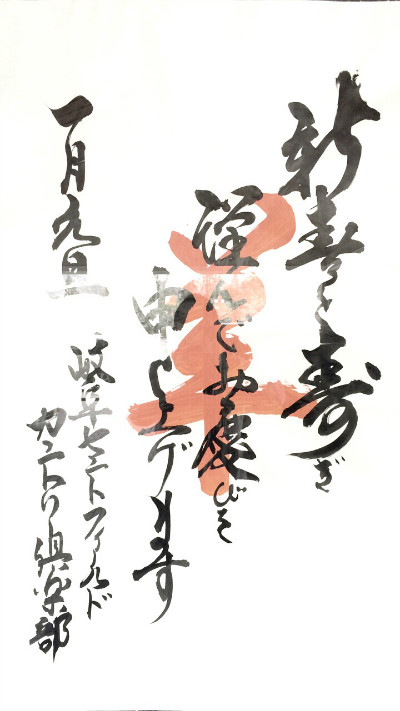 新春を寿ぎ
謹んでお慶びを
申し上げます
一月元旦
岐阜セントフィールド
カントリー倶楽部